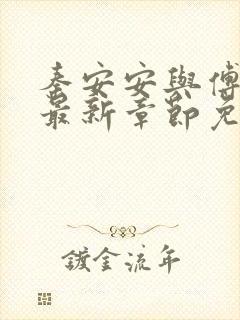 秦安安與傅
最新章節免
鍍金流年